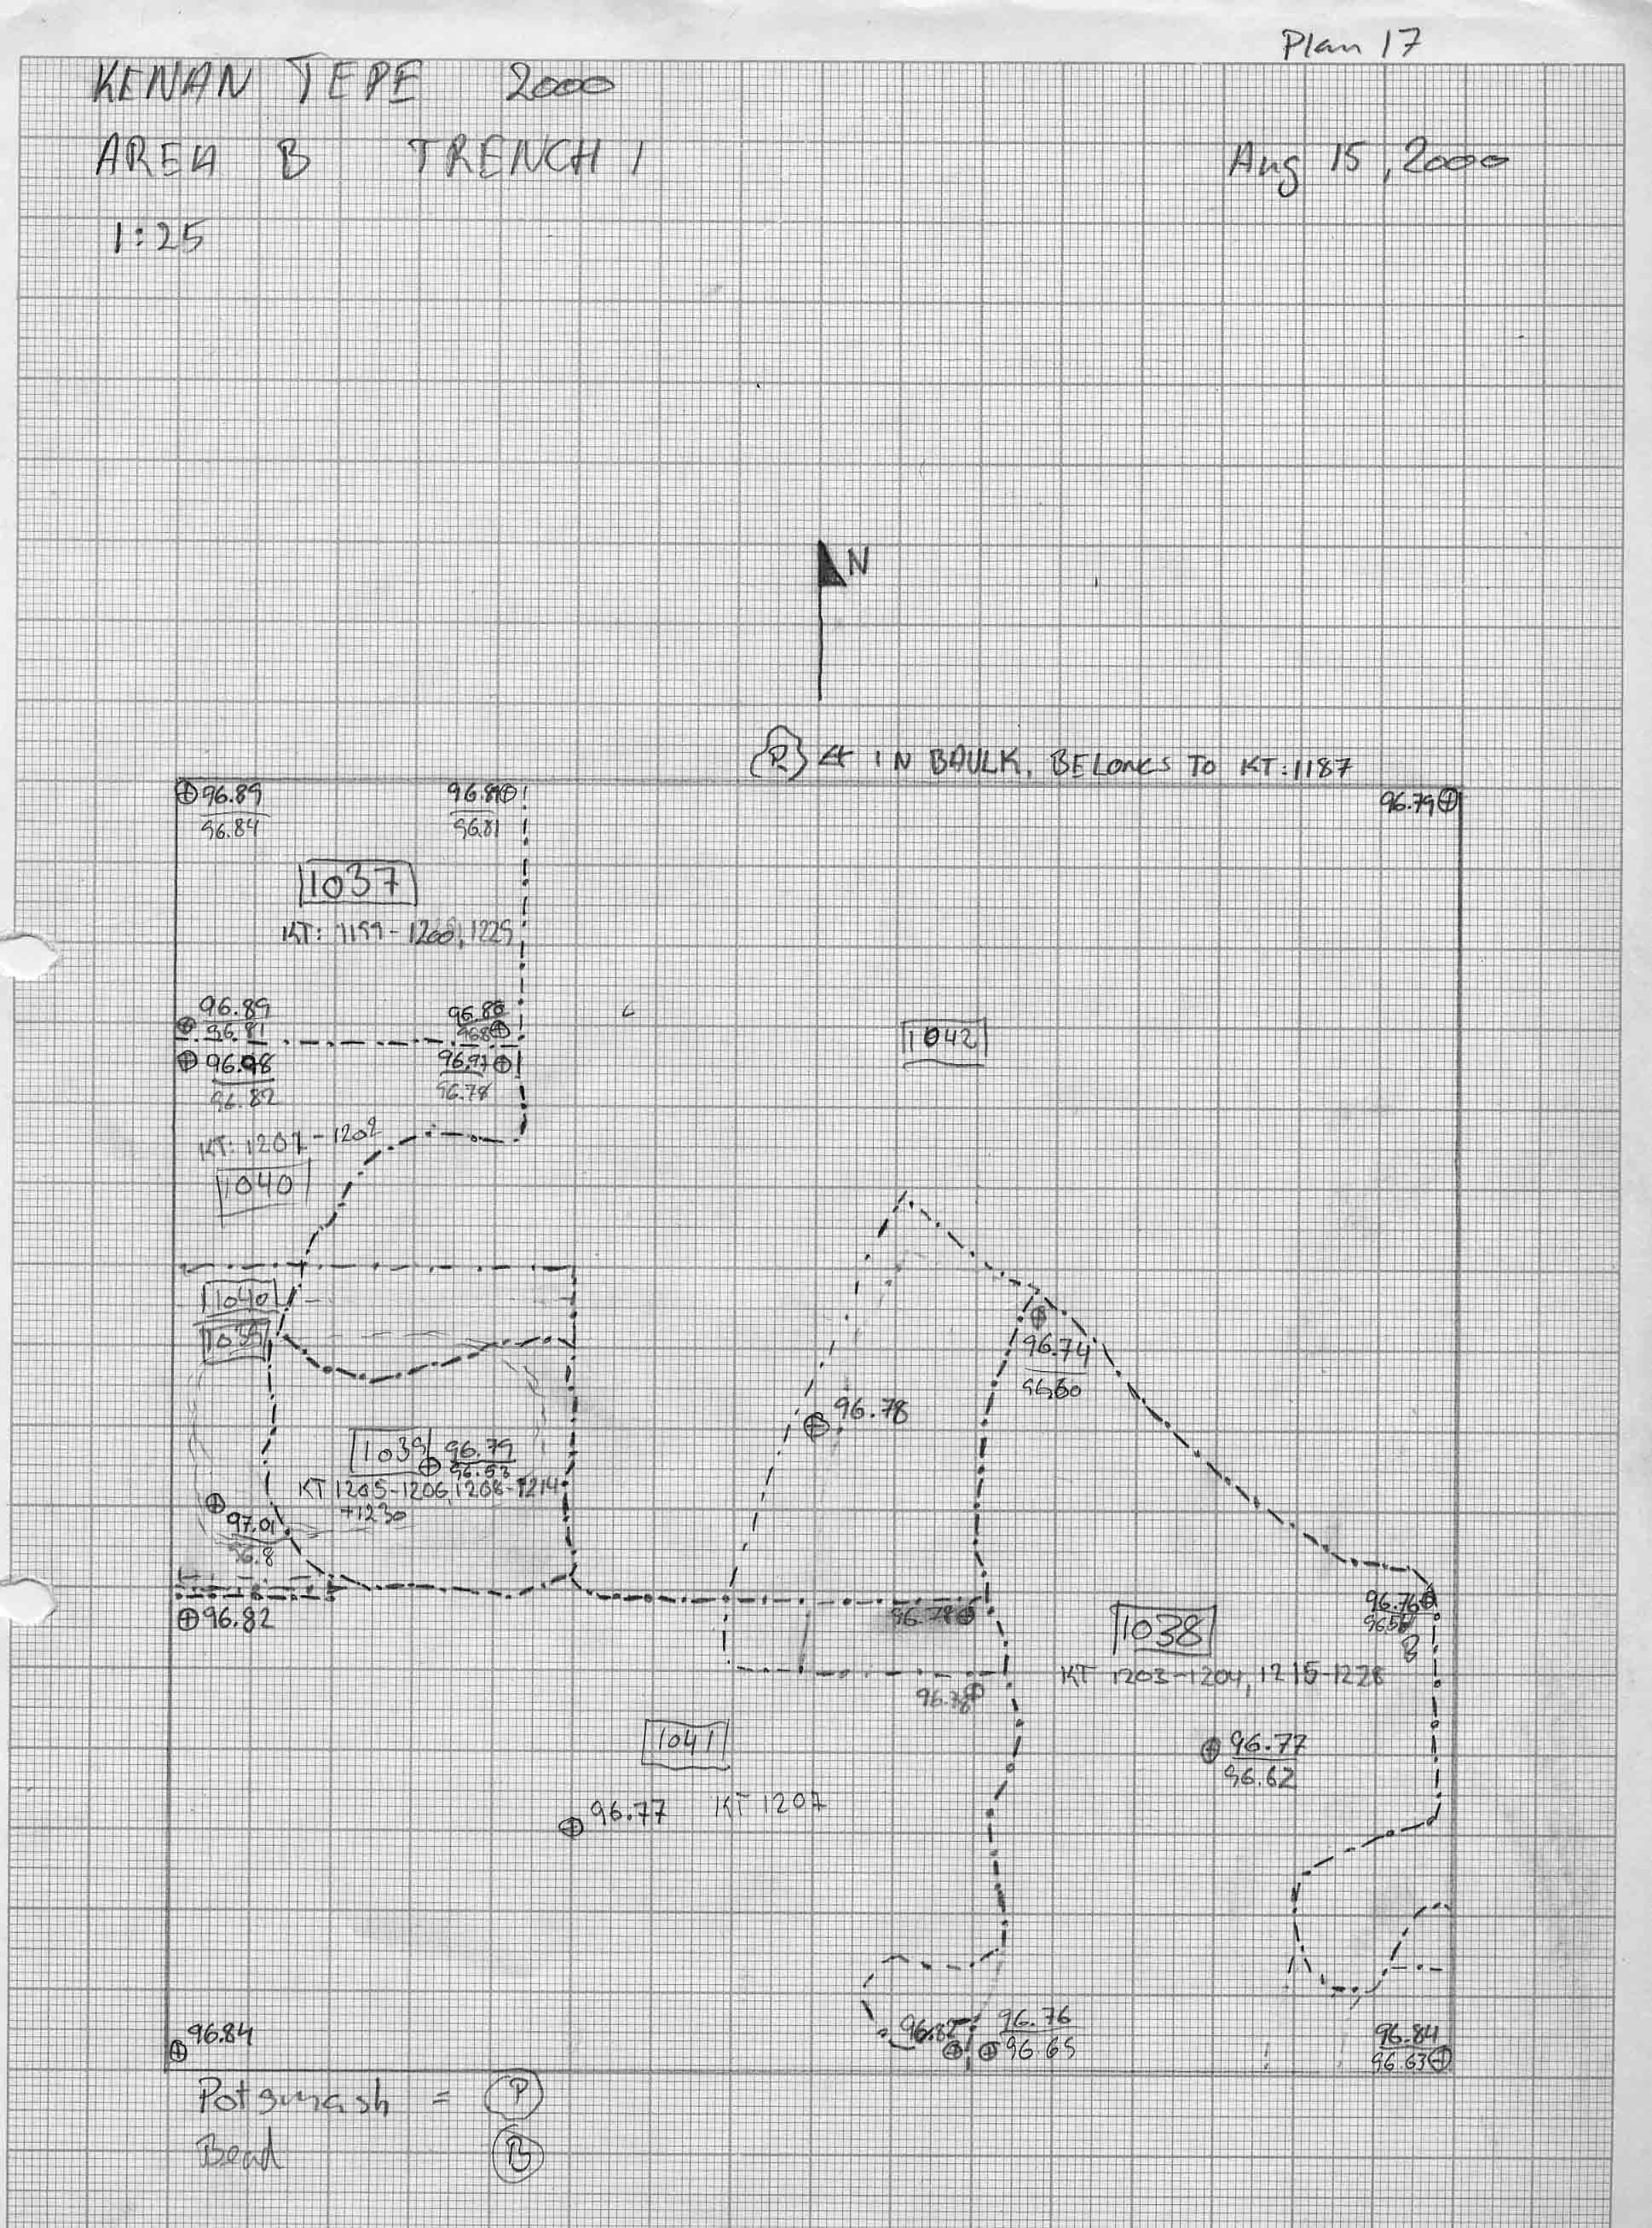 Plan 17
KENAN TEPE 2000
AREA B TRENCH 1
Aug 15, 2000
1:25
N
IN BAULK, BELONGS TO KT:1187
96.89
96.84
96.81
96.79
1037
KT: 1199-1200, 1229
96.89
96.81
96.88
96.98
96.82
96.97
96.78
1042
KT: 1201-1202
1040
1040
1039
96.74
96.60
96.78
1039
96.79
96.53
KT 1205-1206, 1208-1214
+1230
97.01
96.8
96.82
96.78
96.76
1038
KT 1203-1204, 1215-1228
96.78
1041
96.77
96.62
96.77 KT 1207
96.84
96.76
96.65
96.84
96.63
Potsmash = P
Bead B